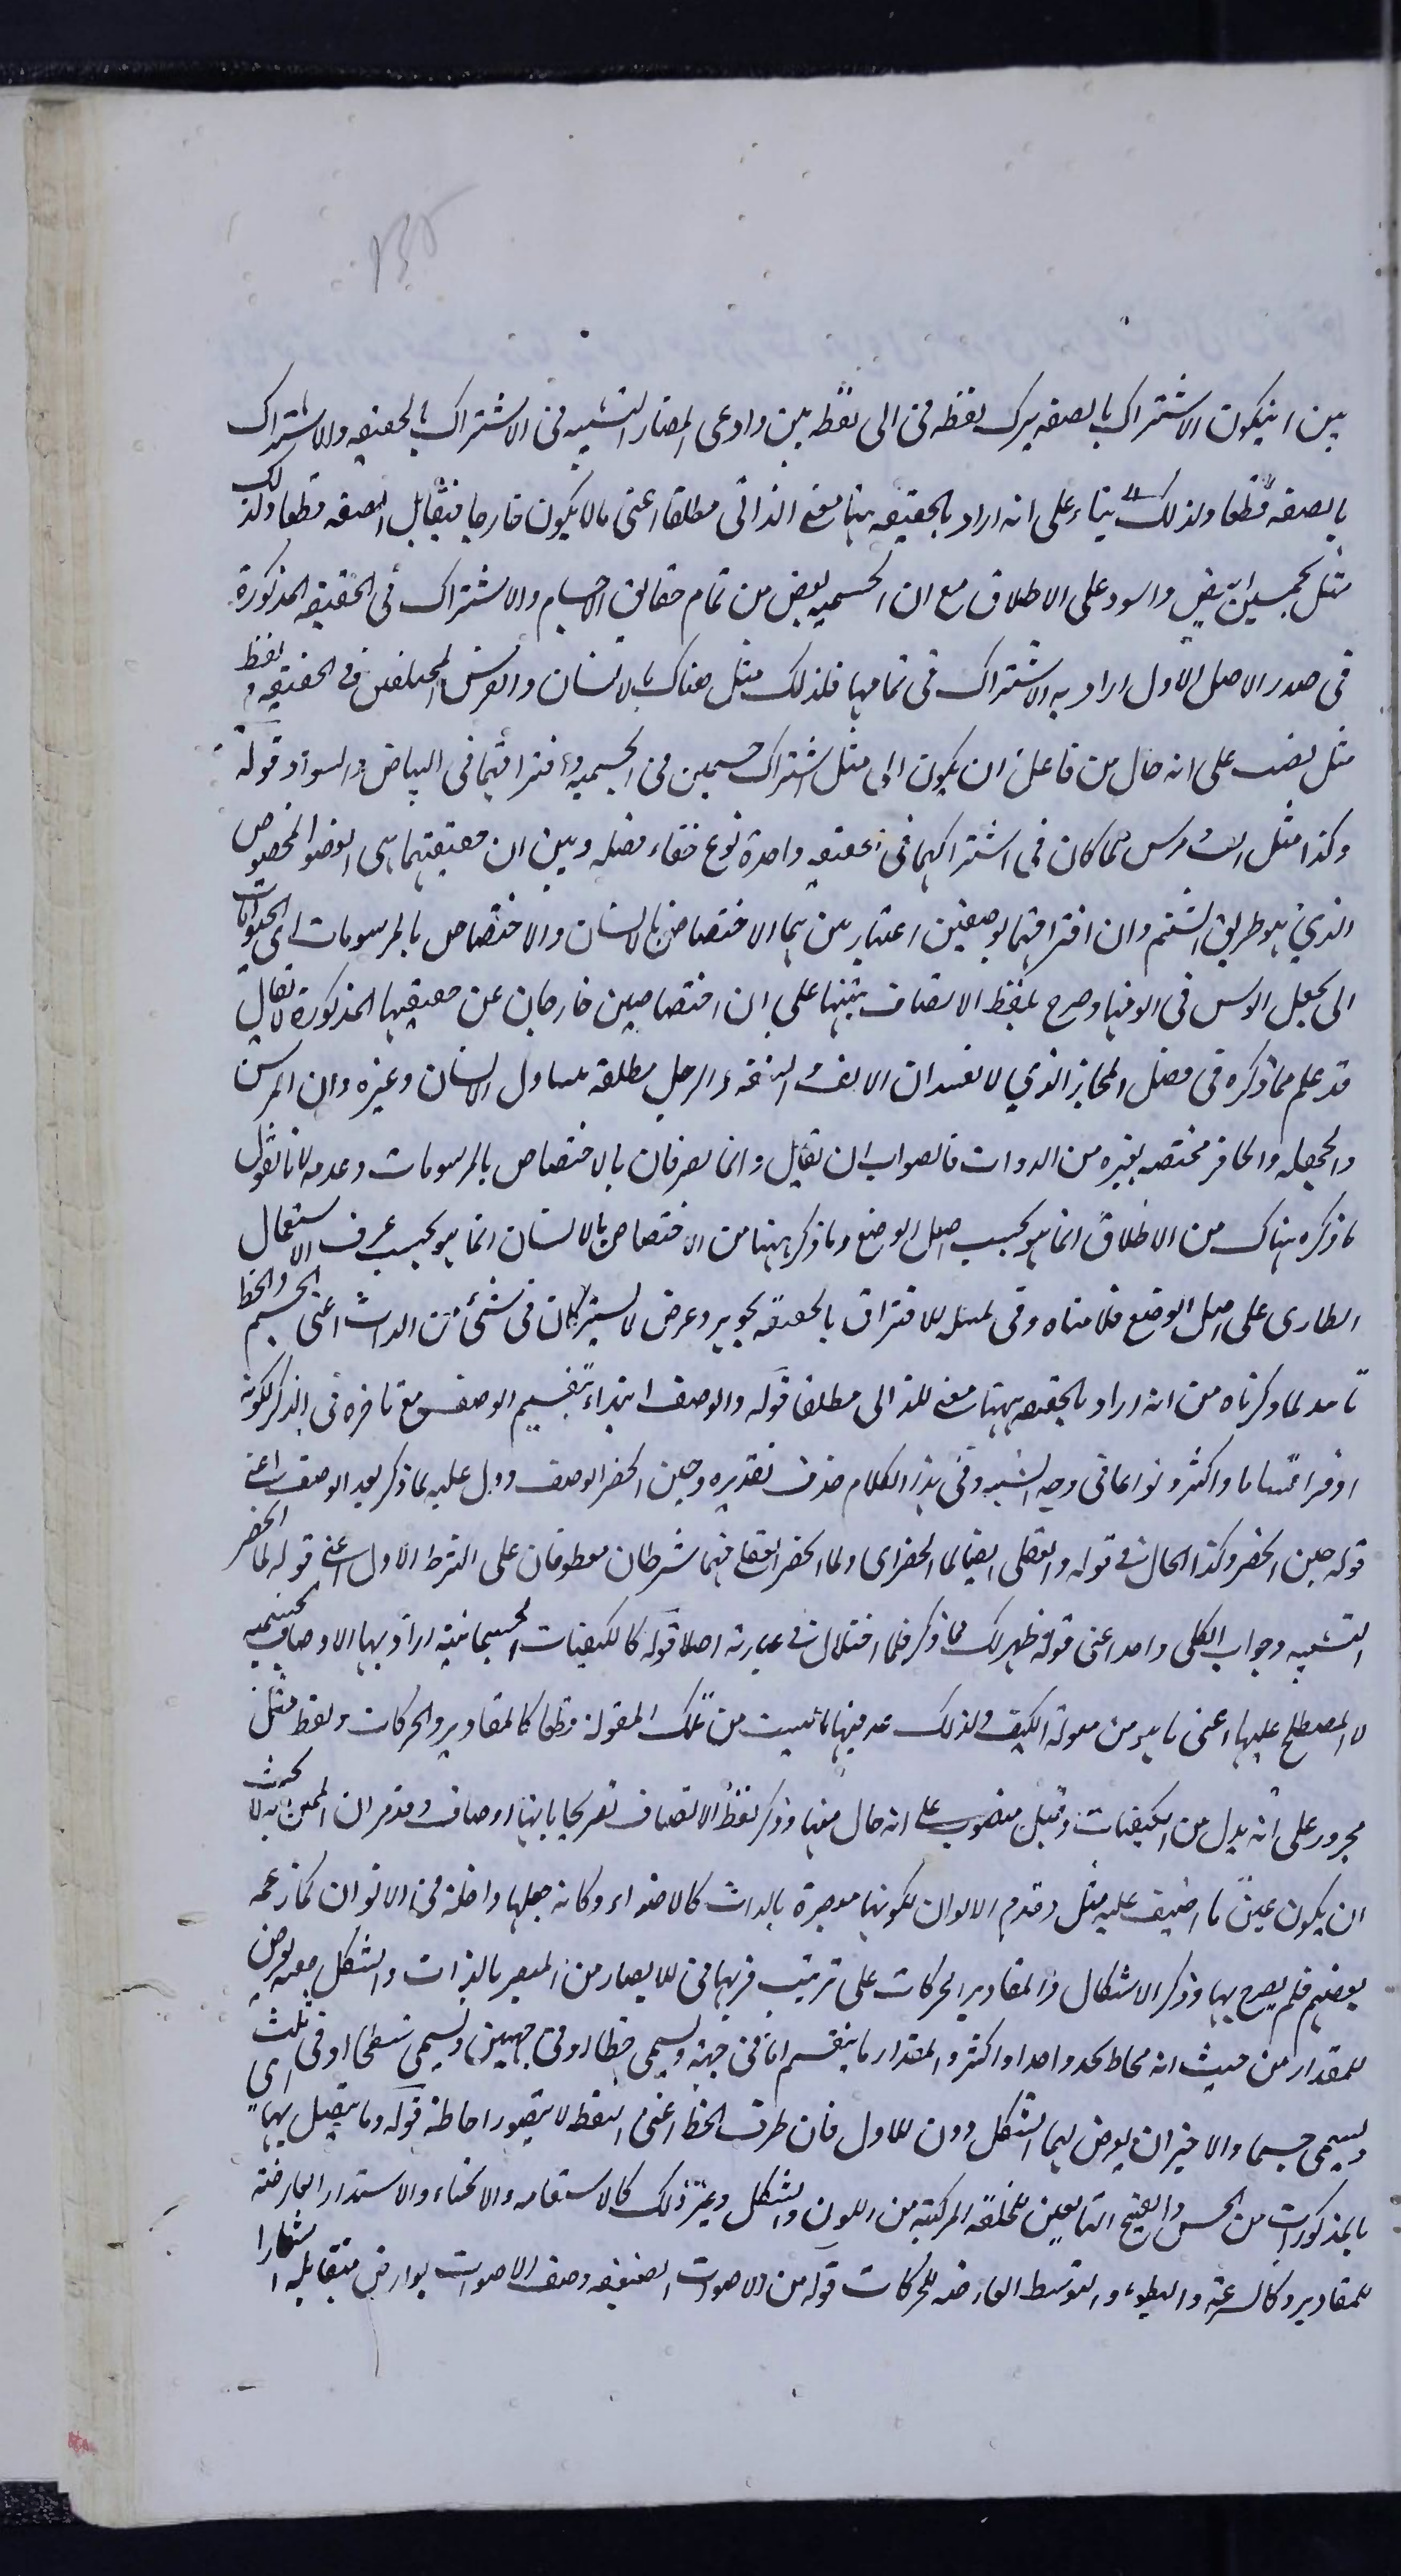 بين ان يكون الاشتراك بالصفة يترك لفظة في الى لفظ بين وادعى المضار التشبيه في الاشتراك بالحقيقة والاشتراك
بالصفة قطعا ولذلك بناء على انه اراد بالحقيقة ههنا معنى الذاتي مطلقا اعنى مالا يكون خارجا فيقابل الصفة قطعا ولذلك
مثل بجسمين ابيض واسود على الاطلاق مع ان الجسمية بعض من تمام حقائق الاجسام والاشتراك في الحقيقة المذكورة
في صدر الاصل الاول اراد به الاشتراك في تمامها فلذلك مثل هناك بالانسان والفرس المختلفين في الحقيقة ولفظ
مثل نصب على انه حال من فاعل ان يكون اى مثل اشتراك جسمين في الجسمية وافتراقهما في البياض والسواد قوله
وكذا مثل انف ومرسن لما كان في اشتراكهما في حقيقة واحدة نوع خفاء فصله وبين ان حقيقتهما هى العضو المخصوص
الذي هو طريق الشم وان افتراقهما بوصفين اعتباريين هما الاختصاص بالانسان والاختصاص بالمرسومات اى الحيوانات
التى يجعل الرسن في انوفها وصرح بلفظ الاتصاف تنبيها على ان الاختصاصين خارجان عن حقيقتها المذكورة لا يقال
قد علم مما ذكره في فصل المجاز الذي لا يفيد ان الانف والشفة والرجل مطلقة تتناول الانسان وغيره وان المرسن
والجحفلة والحافر مختصة بغيره من الدواب فالصواب ان يقال وانما يفترقان بالاختصاص بالمرسومات وعدمه لانا نقول
ما ذكره هناك من الاطلاق انما هو بحسب اصل الوضع وما ذكر ههنا من الاختصاص بالانسان انما هو بحسب عرف الاستعمال
الطارى على اصل الوضع فلا منافاة وفي تمثيله للافتراق بالحقيقة بجوهر وعرض لا يشتركان في شئ من الذات اعنى الجسم والخط
تأييد لما ذكرناه من انه اراد بالحقيقة ههنا معنى الذاتى مطلقا قوله والوصف ابتداء بتقسيم الوصف مع تأخره في الذكر لكونه
اوفر اقساما واكثر انواعا في وجه الشبه وفي هذا الكلام حذف تقديره وحين انحصر الوصف ودل عليه ما ذكر بعد الوصف اعنى
قوله حين انحصر وكذا الحال في قوله والعقلى ايضا لما انحصر اى ولما انحصر العقلى فهما شرطان معطوفان على الشرط الاول اعنى قوله لما انحصر
التشبيه وجواب الكل واحد اعنى قوله ظهر لك مما ذكر فلا اختلال في عبارته اصلا قوله كالكيفيات الجسمانية اراد بها الاوصاف الجسمية
لا المصطلح عليها اعنى ما هو من مقولة الكيف ولذلك عد فيها ما ليست من تلك المقولة قطعا كالمقادير والحركات ولفظ مثل
مجرور على انه بدل من الكيفيات وقيل منصوب على انه حال منها وذكر لفظ الاتصاف تصريحا بانها اوصاف وقد مر ان الممثل به لا يجب
ان يكون عين ما اضيف عليه مثل وقدم الالوان لكونها مبصرة بالذات كالاضواء وكانه جعلها داخلة في الالوان كما زعمه
بعضهم فلم يصرح بها وذكر الاشكال والمقادير والحركات على ترتيب قربها في الابصار من المبصر بالذات والشكل هيئة تعرض
للمقدار من حيث انه محاط بحد واحد او اكثر والمقدار ما ينقسم اما في جهة ويسمى خطا او في جهتين ويسمى سطحا او في ثلث
ويسمى جسما والاخيران يعرض لهما الشكل دون الاول فان طرف الخط اعنى النقطة لا يتصور احاطته قوله وما يتصل بها اى
بالمذكورات من الحسن والقبح التابعين للخلقة المركبة من اللون والشكل وغير ذلك كالاستقامة والانحناء والاستدارة العارضة
للمقادير وكالسرعة والبطوء والتوسط العارضة للحركات قوله من الاصوات الضعيفة وصف الاصوات بعوارض متقابلة اشعارا